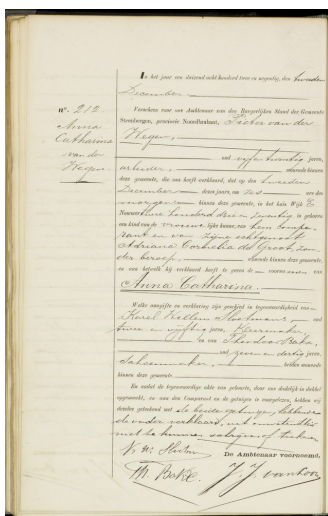 In het jaar een duizend acht honderd twee en negentig, den tweeden
December
Verscheen voor ons Ambtenaar van den Burgerlijken Stand der Gemeente
Steenbergen, provincie Noordbrabant, Pieter van der
Wegen,
nº 212
Anna
Catharina
van der
Wegen
oud vijf en twintig jaren,
arbeider, wonende binnen
deze gemeente, die ons heeft verklaard, dat op den tweeden
December dezes jaars, ten zes ure des
morgens binnen deze gemeente, in het huis Wijk E
Nummer twee honderd drie en twintig is geboren
een kind van de vrouwelijke kunne, van hem compa-
rant en van zijne echtgenoot
Adriana Cornelia de Groot, zon-
der beroep, wonende binnen deze gemeente,
en aan hetwelk hij verklaard heeft te geven de voornamen van
Anna Catharina.
Welke aangifte en verklaring zijn geschied in tegenwoordigheid van
Karel Willem Slootmans oud
twee en vijftig jaren, kleermaker,
en van Theodoor Bakx,
oud zeven en dertig jaren,
schoenmaker, beiden wonende
binnen deze gemeente.
En nadat de tegenwoordige akte van geboorte, door ons dadelijk in dubbel
opgemaakt, nu aan den Comparant en de getuigen is voorgelezen, hebben wij
dezelve geteekend met de beide getuigen, hebbende
de vader verklaard, uit onwetendheid
niet te kunnen schrijven of teekenen
De Ambtenaar voornoemd,
Th. Bakx. J. J. van